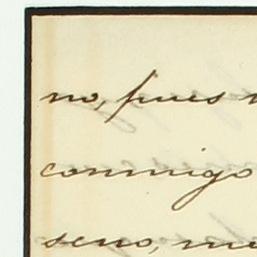 no, pues
conmigo
seno, me